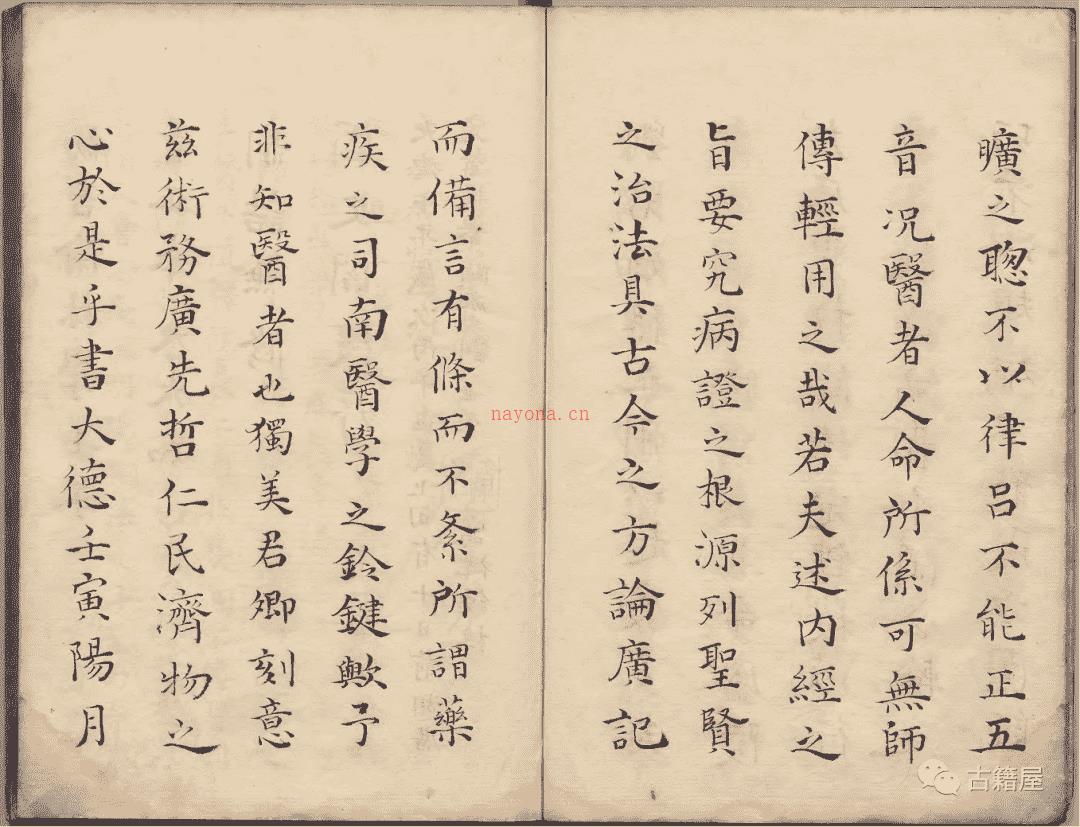 曠之聰不以律呂不能正五
音况醫者人命所係可無師
傳輕用之哉若夫述内經之
㫖要究病證之根源列聖賢
之治法具古今之方論廣記
而備言有條而不紊所謂藥
疾之司南醫學之鈴鍵歟予
非知醫者也獨美君卿刻意
兹術務廣先哲仁民濟物之
心於是乎書大德壬寅陽月
nayona.cn
古籍屋